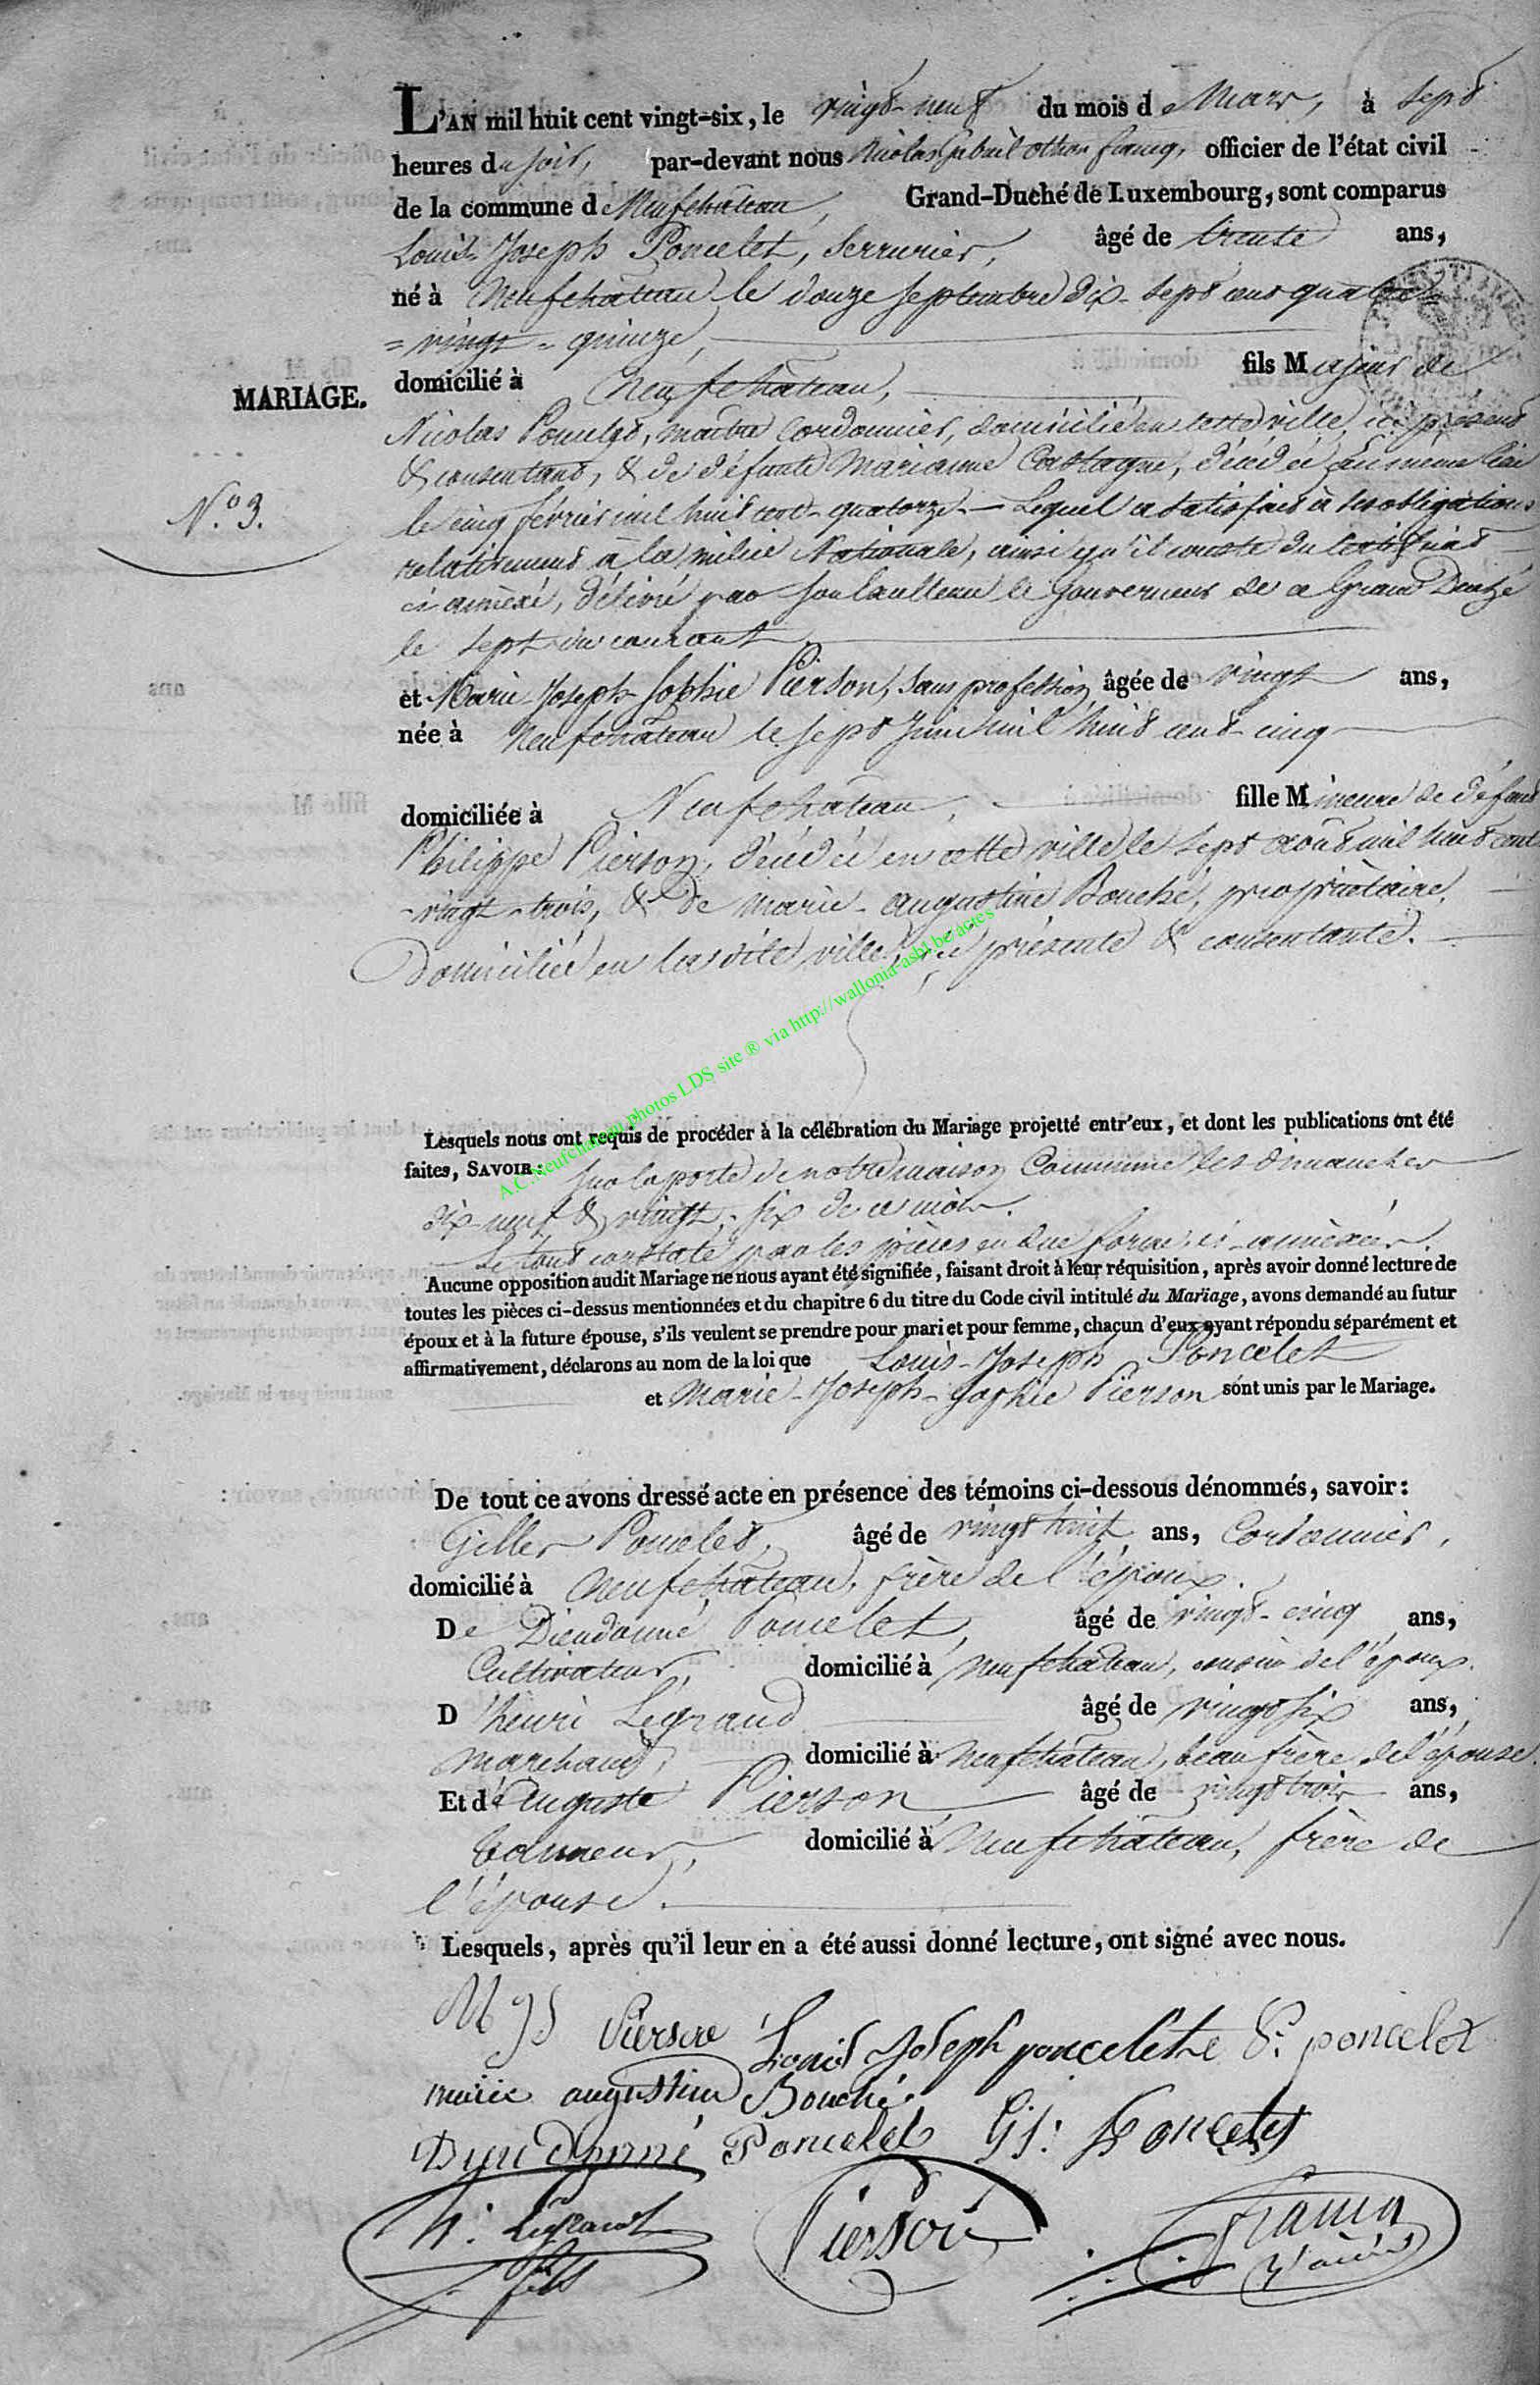 L'AN mil huit cent vingt-six, le vingt-neuf du mois de Mars, à sept
heures du soir, par-devant nous Nicolas officier de l'état civil
de la commune de Neufchâteau, Grand-Duché de Luxembourg, sont comparus
Louis-Joseph Poncelet, Serrurier, âgé de trente ans,
né à Neufchâteau le douze septembre dix-sept cent quatre=
=vingt=quinze,
domicilié à Neufchâteau, fils Majeur de
MARIAGE.
Nicolas Poncelet, maître Cordonnier, domicilié en cette ville, ici présent
& consentant, & de défunte Marianne Castagne, décédée au même lieu
N.º 3.
le cinq février mil huit cent-quatorze. — Lequel a satisfait à ses obligations
relativement à la milice Nationale, ainsi qu'il conste du certificat
ci-annèxé, délivré par Son Excellence le Gouverneur de ce Grand Duché
le sept du courant
et Marie-Joseph-Sophie Pierson, sans profession, âgée de vingt ans,
née à Neufchâteau le sept Juin mil huit cent-cinq
domiciliée à Neufchâteau, fille Mineure de défunt
Philippe Pierson, décédé en cette ville le sept août mil huit cent
-vingt-trois, & de Marie-Augustine Bouché, propriètaire,
Domiciliée en la dite ville, ici présente & consentante.
Lesquels nous ont requis de procéder à la célébration du Mariage projetté entr'eux, et dont les publications ont été
faites, SAVOIR: sur la porte de notre maison Commune les dimanches
dix-neuf & vingt-six de ce mois.
Le tout constaté par les pièces en due forme ci-annèxées.
Aucune opposition audit Mariage ne nous ayant été signifiée, faisant droit à leur réquisition, après avoir donné lecture de
toutes les pièces ci-dessus mentionnées et du chapitre 6 du titre du Code civil intitulé du Mariage, avons demandé au futur
époux et à la future épouse, s'ils veulent se prendre pour mari et pour femme, chacun d'eux ayant répondu séparément et
affirmativement, déclarons au nom de la loi que Louis-Joseph Poncelet
et Marie-Joseph-Sophie Pierson sont unis par le Mariage.
De tout ce avons dressé acte en présence des témoins ci-dessous dénommés, savoir:
Gilles Poncelet, âgé de vingt huit ans, Cordonnier,
domicilié à Neufchâteau, frère de l'époux.
De Dieudonné Poncelet, âgé de vingt-cinq ans,
Cultivateur, domicilié à Neufchâteau, cousin de l'époux.
D'henri Legrand âgé de vingt six ans,
Marchand, domicilié à Neufchâteau, beau frère de l'épouse.
Et d'Auguste Pierson âgé de vingt trois ans,
tanneur, domicilié à Neufchâteau, frère de
l'épouse.
Lesquels, après qu'il leur en a été aussi donné lecture, ont signé avec nous.
M J S Pierson Louis Joseph poncelet poncelet
marie augustine Bouché
Dieudonné Poncelet Gs: Poncelet
h: Legrand
fils
Pierson
A.C. Neufchateau photos LDS site ® via http://wallonia-asbl.be/actes